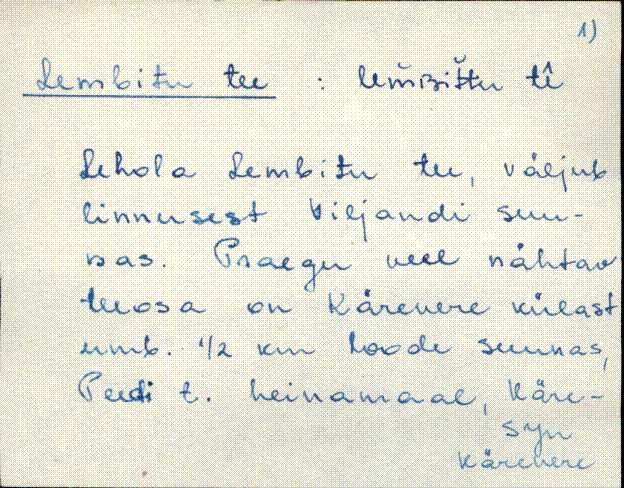 1)
Lembitu tee : lem̆bit̆tu tî
Lehola Lembitu tee, väljub
linnusest Viljandi suu-
nas. Praegu veel nähtav
teeosa on Kärevere külast
umb. 1/2 km loode suunas,
Peedi t. heinamaal, Käre-
Syn
Kärevere